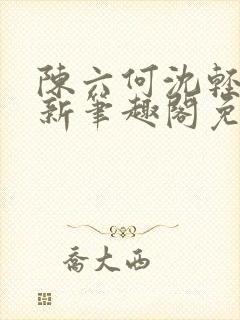 陳六何沈輕
新筆趣閣免
喬大西